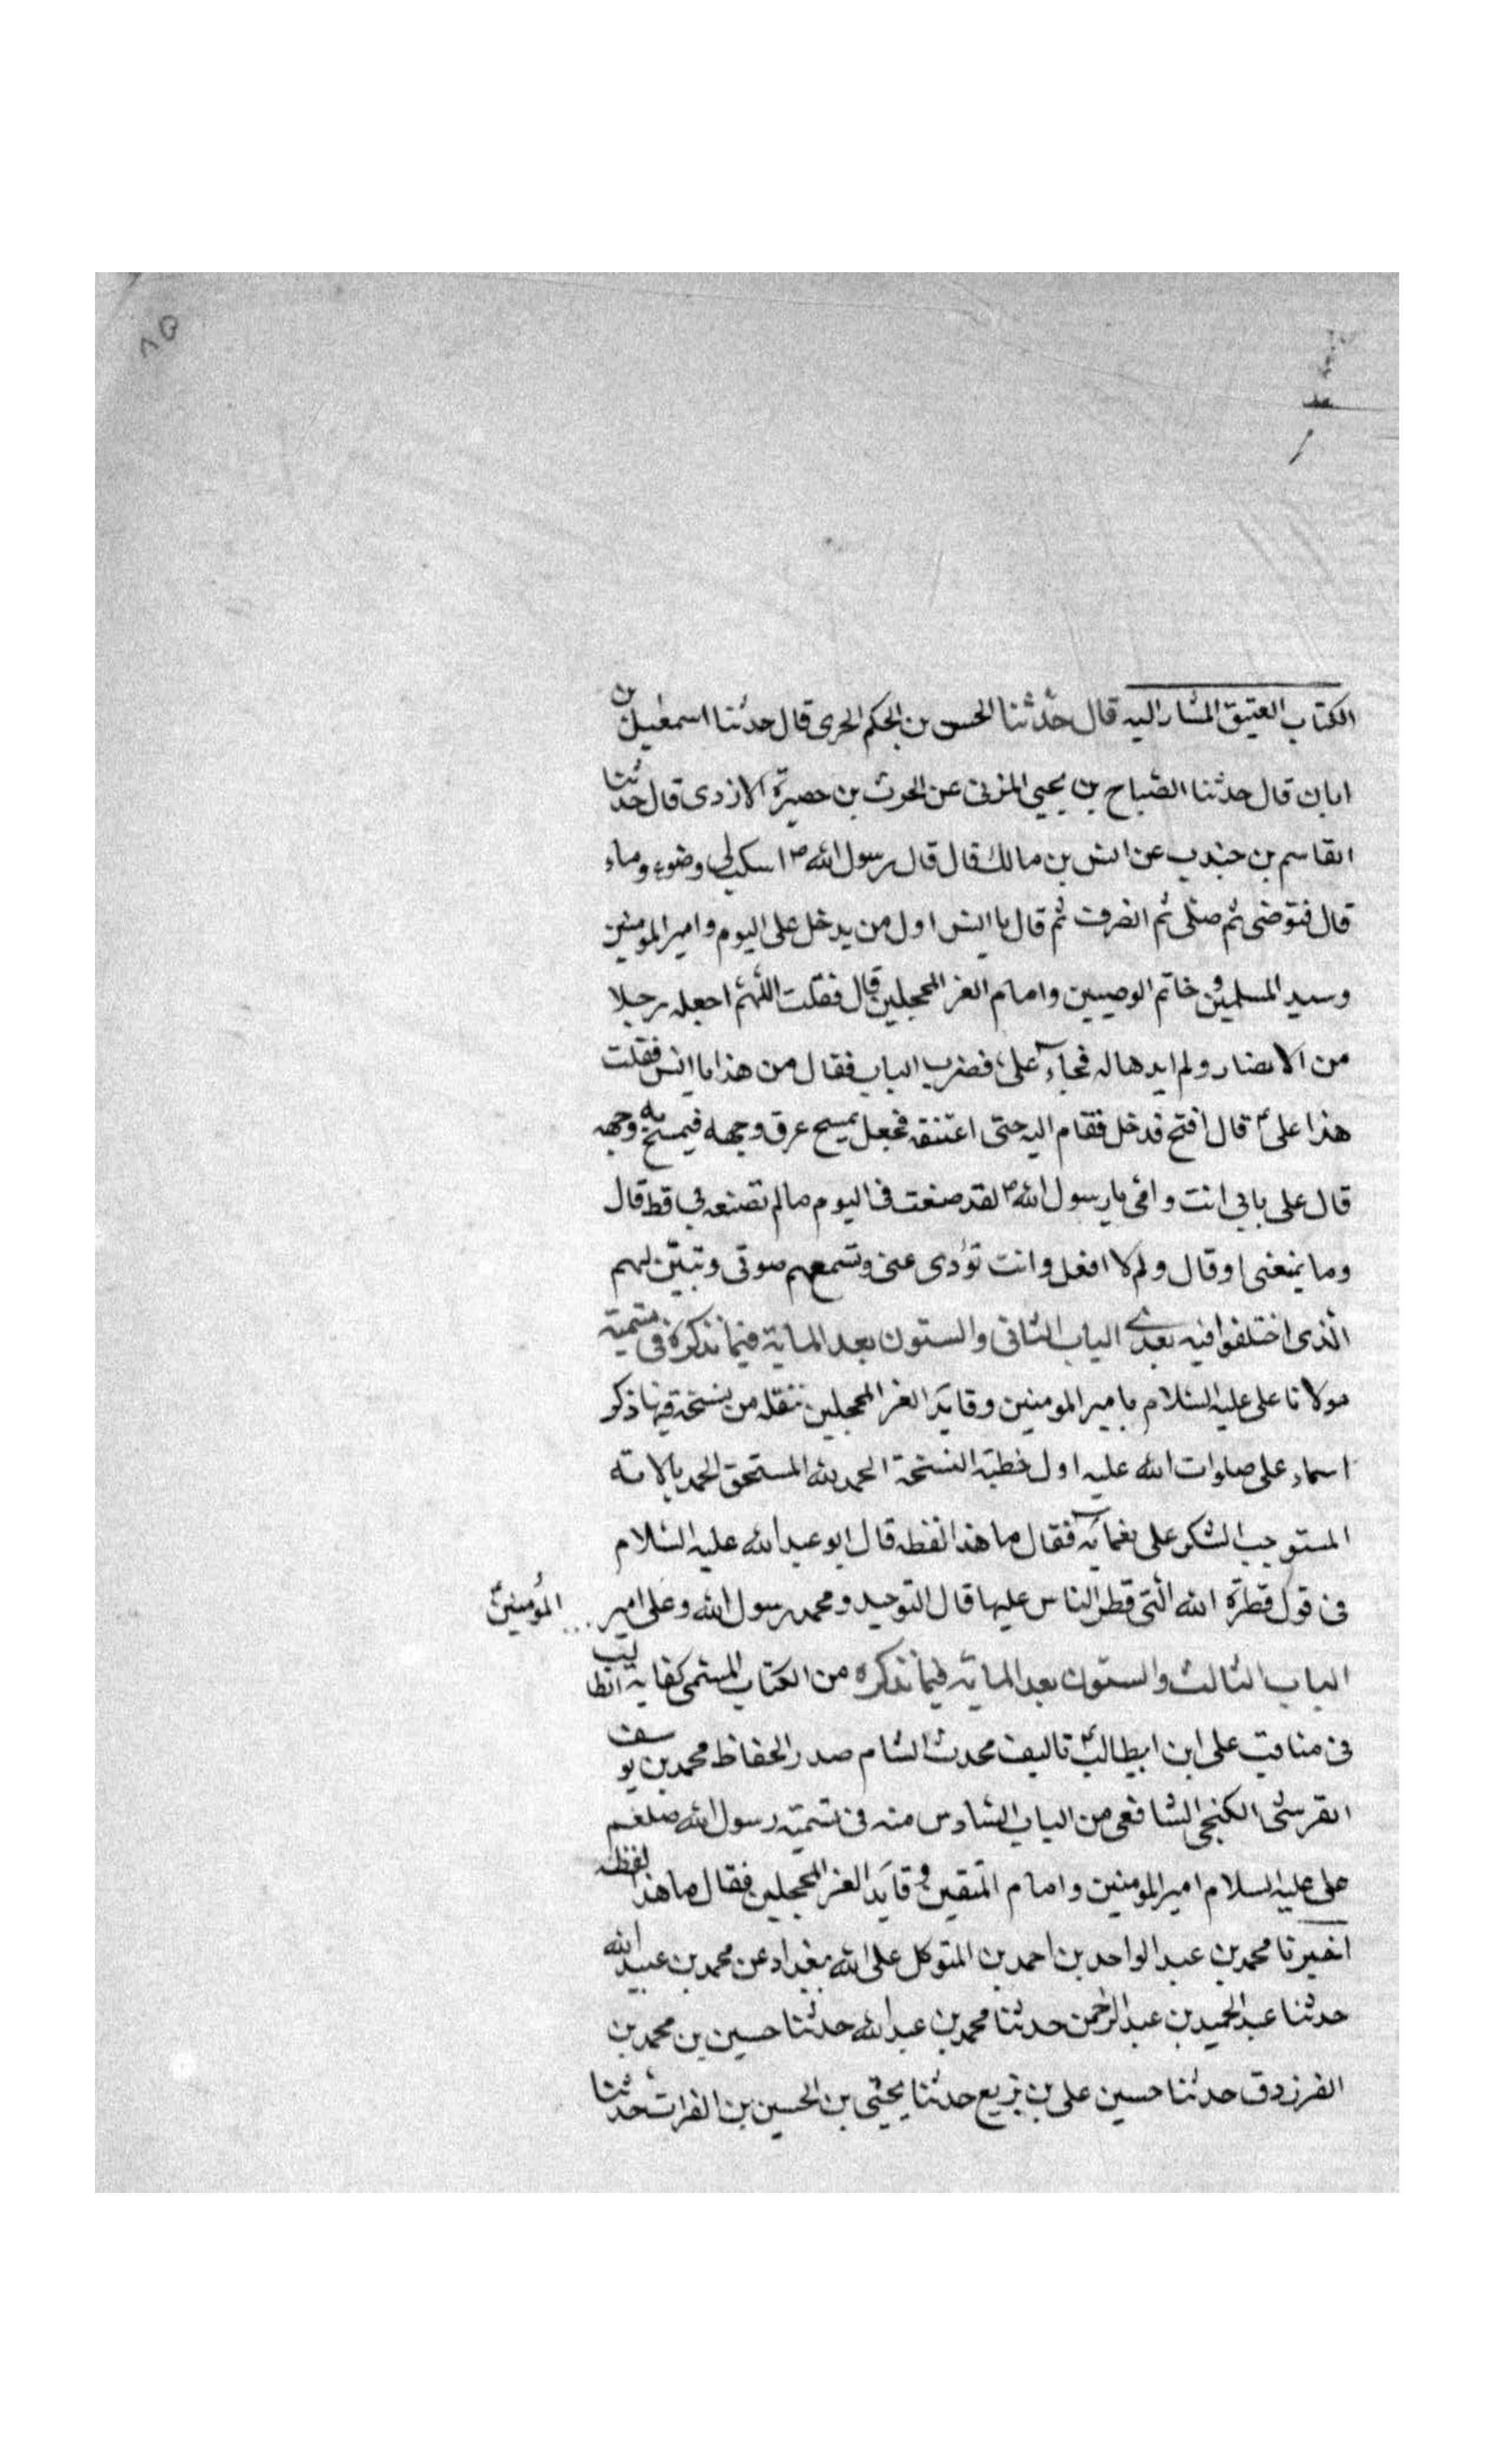 ٨٥
الكتاب العتيق المشار اليه قال حدّثنا الحسن بن الحكم الحرى قال حدثنا اسمعيل بن
ابان قال حدثنا الصّباح بن يحيى المزنى عن الحرث بن حصيرة الازدى قال حدثنا
القاسم بن جندب عن انس بن مالك قال قال رسول الله ص اسكب لى وضوء وماء
قال فتوضى ثم صلى ثم انصرف ثم قال يا انس اول من يدخل على اليوم وامير المومنين
وسيد المسلمين و خاتم الوصيين وامام الغر المحجلين قال فقلت اللهم اجعله رجلا
من الانصار ولم ابدها له فجاء على فضرب الباب فقال من هذا يا انس فقلت
هذا على قال افتح فدخل فقام اليه حتى اعتنقه فجعل يمسح عرق وجهه فيمسح به وجهه
قال على بابى انت وامى يا رسول الله ص لقد صنعت فى اليوم مالم تصنعه بى قط قال
وما يمنعنى او قال ولم لا افعل وانت تؤدى عنى وتسمعهم صوتى وتبيّن لهم
الّذى اختلفوا فيه بعدى الباب الثانى والستون بعد الماية فيما نذكره فى تسمية
مولانا على عليه السّلام بامير المومنين وقايد الغر المحجلين ننقله من نسخة فيها ذكر
اسماء على صلوات الله عليه اول خطبة النسخة الحمد لله المستحق الحمد بالاته
المستوجب الشكر على نعمائه فقال ما هذا لفظه قال ابو عبد الله عليه السّلام
فى قول فطرة الله الّتى فطر الناس عليها قال التوحيد ومحمد رسول الله وعلى امير ... المؤمنين
الباب الثالث والستون بعد الماية فيما نذكره من الكتاب المسمى كفاية الطالب
فى مناقب على ابن ابيطالب تاليف محدث الشام صدر الحفاظ محمد بن يوسف
القرشى الكنجى الشافعى من الباب السّادس منه فى تسمية رسول الله صلعم
على عليه السلام امير المومنين وامام المتقين و قايد الغر المحجلين فقال ما هذا لفظه
اخبرنا محمد بن عبد الواحد بن احمد بن المتوكل على الله ببغداد عن محمد بن عبيد الله
حدثنا عبد الحميد بن عبد الرّحمن حدثنا محمد بن عبد الله حدثنا حسين بن محمد بن
الفرزدق حدثنا حسين على بن بزيع حدثنا يحيى بن الحسين بن الفرات حدثنا